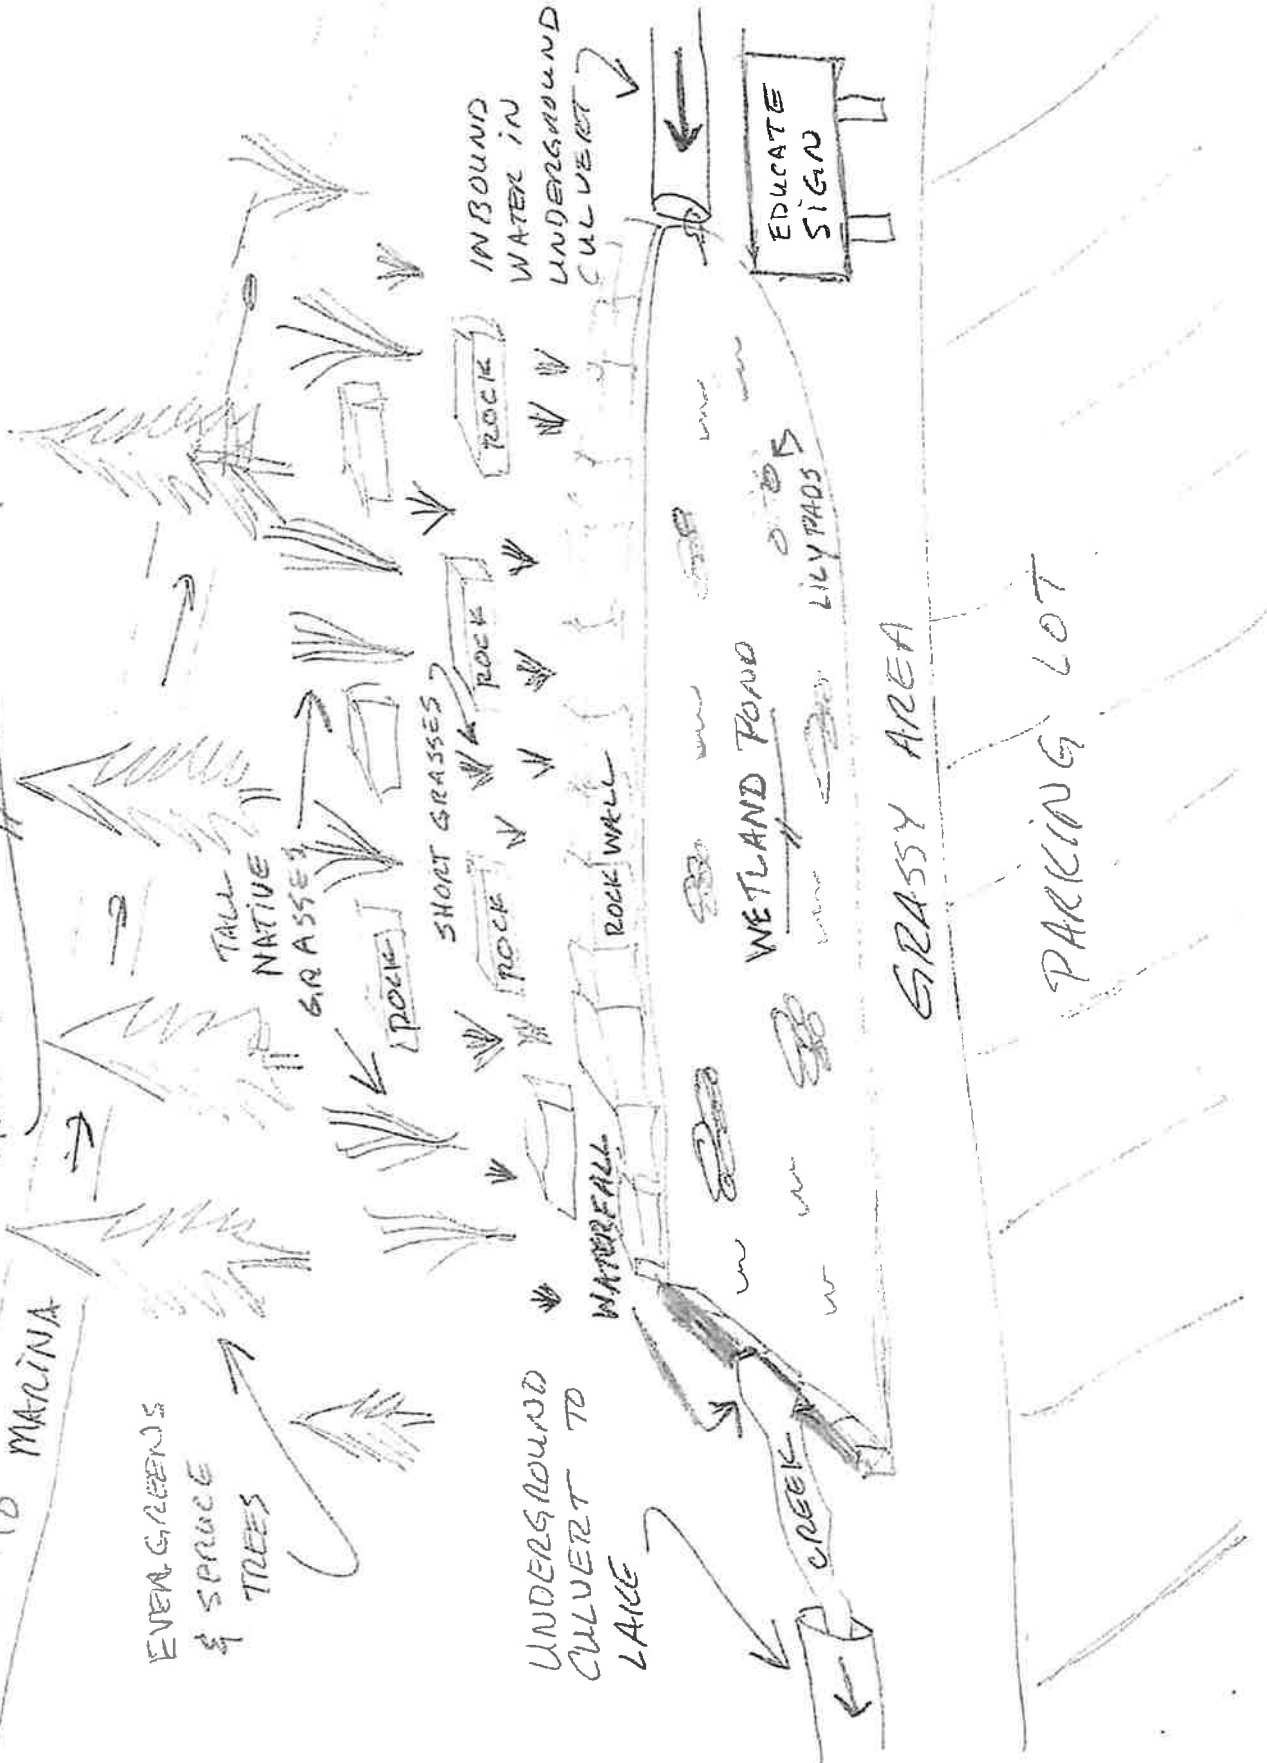 MARINA
EVERGREENS
& SPRUCE
TREES
TALL
NATIVE
GRASSES
SHORT GRASSES
ROCK
ROCK
ROCK
ROCK
INBOUND
WATER IN
UNDERGROUND
CULVERT
UNDERGROUND
CULVERT TO
LAKE
WATERFALL
ROCK WALL
CREEK
WETLAND POND
LILY PADS
EDUCATE
SIGN
GRASSY AREA
PARKING LOT